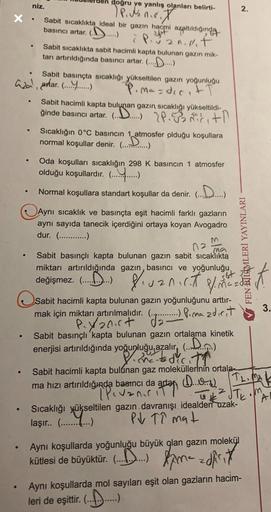 doğru ve yanlış olanları belirti-
niz.
2.
• Sabit sıcaklıkta ideal bir gazın hacmi azaltıldığında
basıncı artar. (....D.....)
P.V=n.r.t
• Sabit sıcaklıkta sabit hacimli kapta bulunan gazın mik-
tarı artırıldığında basıncı artar. (....D.....)
• Sabit basınçta sıcaklığı yükseltilen gazın yoğunluğu
artar. (....Y.....)
P.ma=d.r.t
• Sabit hacimli kapta bulunan gazın sıcaklığı yükseltildi-
ğinde basıncı artar. (....D.....)
• Sıcaklığın 0°C basıncın 1 atmosfer olduğu koşullara
normal koşullar denir. (....D.....)
• Oda koşulları sıcaklığın 298 K basıncın 1 atmosfer
olduğu koşullardır. (....Y.....)
• Normal koşullara standart koşullar da denir. (....D.....)
• Aynı sıcaklık ve basınçta eşit hacimli farklı gazların
aynı sayıda tanecik içerdiğini ortaya koyan Avogadro
dur. (............)
n=m/ma
• Sabit basınçlı kapta bulunan gazın sabit sıcaklıkta
miktarı artırıldığında gazın basıncı ve yoğunluğu
değişmez. (....D.....)
P.V=n.r.t
• Sabit hacimli kapta bulunan gazın yoğunluğunu artır-
mak için miktarı artırılmalıdır. (............)
P.ma=d.r.t
P.V=n.r.t
• Sabit basınçlı kapta bulunan gazın ortalama kinetik
enerjisi artırıldığında yoğunluğu azalır. (....D.....)
P.ma=d.r.t
• Sabit hacimli kapta bulunan gaz moleküllerinin ortala-
ma hızı artırıldığında basıncı da artar.
P.V=n.r.t
• Sıcaklığı yükseltilen gazın davranışı idealden uzak-
laşır.. (....Y.....)
• Aynı koşullarda yoğunluğu büyük olan gazın molekül
kütlesi de büyüktür. (....D.....)
P.ma=d.r.t
• Aynı koşullarda mol sayıları eşit olan gazların hacim-
leri de eşittir. (....D.....)
FEN BİLİMLERİ YAYINLARI
3.